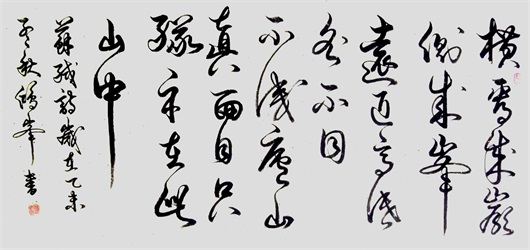 橫看成嶺
側成峯
遠近高低
各不同
不識廬山
真面目只
緣身在此
山中
蘇軾詩歲在乙未
秋峯書